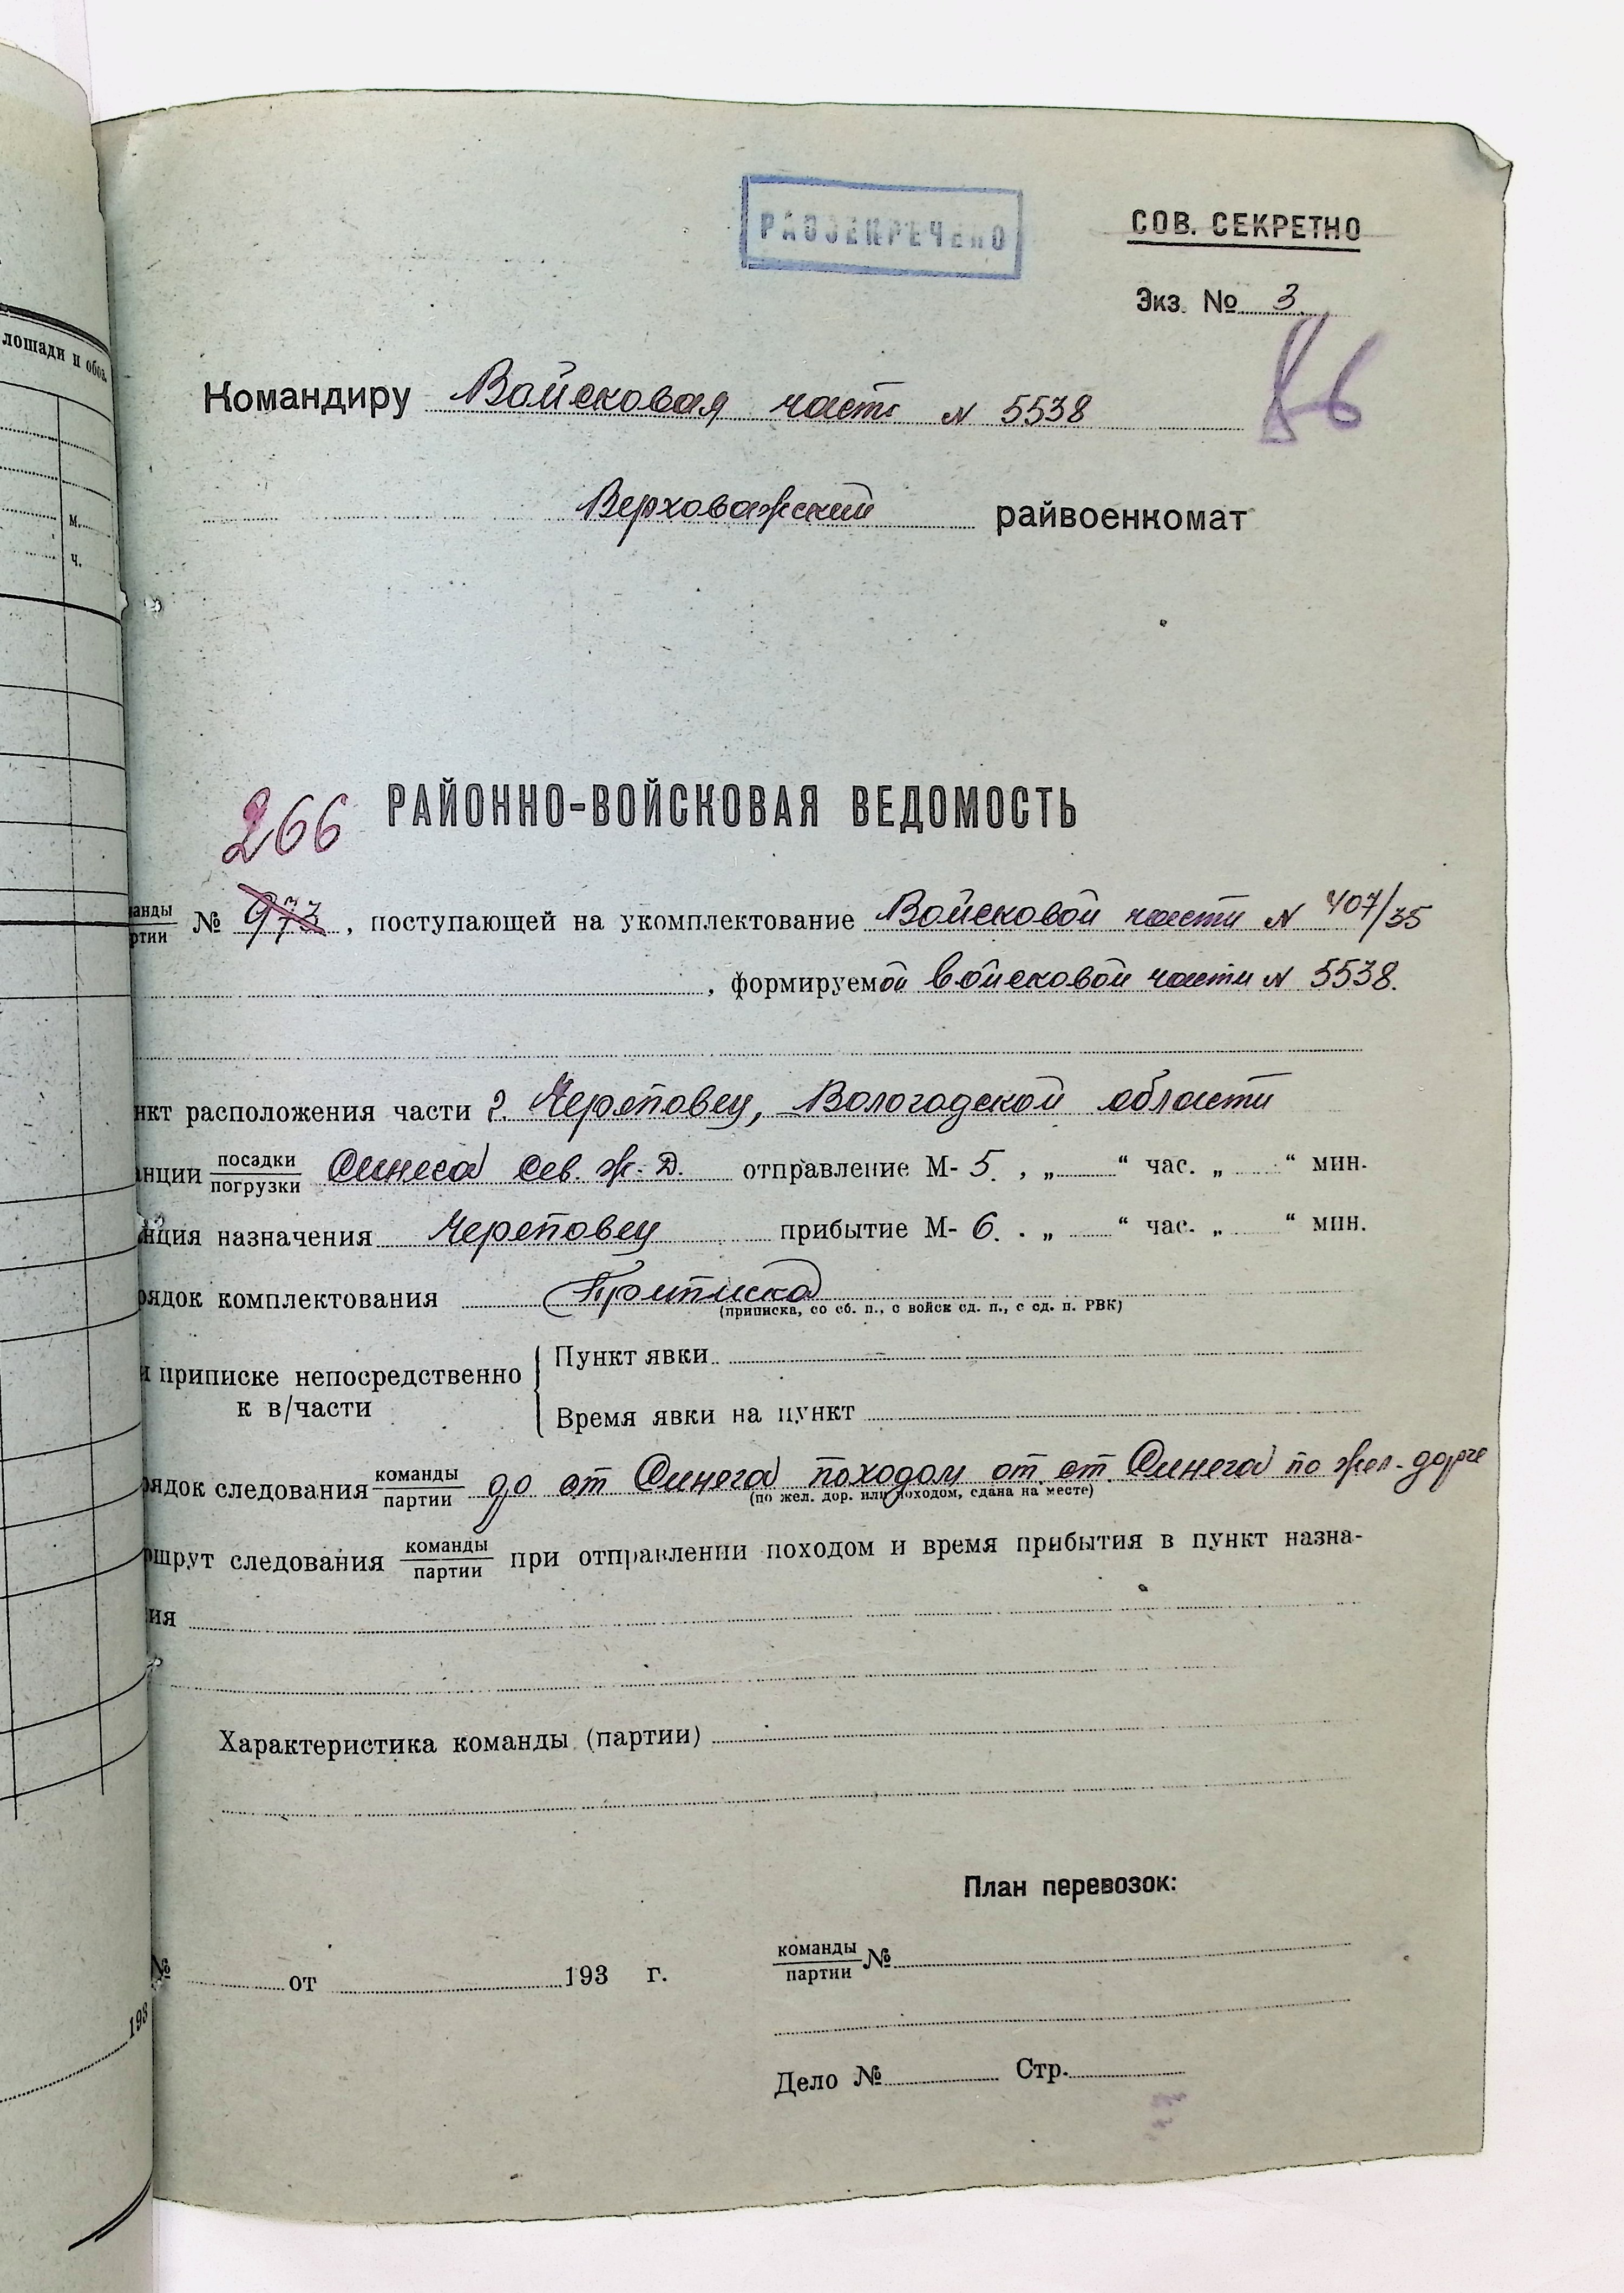 РАССЕКРЕЧЕНО
СОВ. СЕКРЕТНО
Экз. № 3.
86
Командиру Войсковая часть № 5538
Верховажский райвоенкомат
лошади и обоз.
м.
ч.
266
РАЙОННО-ВОЙСКОВАЯ ВЕДОМОСТЬ
анды
ртии № 973, поступающей на укомплектование Войсковой части № 407/35
, формируемой войсковой части № 5538.
нкт расположения части г. Череповец, Вологодской области
анции посадки
погрузки Синега Сев. Ж-Д. отправление М- 5. , „ “ час. „ “ мин.
нция назначения Череповец прибытие М- 6. . „ “ час. „ “ мин.
рядок комплектования Приписка
(приписка, со сб. п., с войск сд. п., с сд. п. РВК)
и приписке непосредственно
к в/части
Пункт явки
Время явки на пункт
рядок следования команды
партии до ст Синега походом от ст. Синега по жел-дороге
(по жел. дор. или походом, сдана на месте)
ршрут следования команды
партии при отправлении походом и время прибытия в пункт назна-
ия
Характеристика команды (партии)
План перевозок:
№ от 193 г.
команды
партии №
193
Дело № Стр.